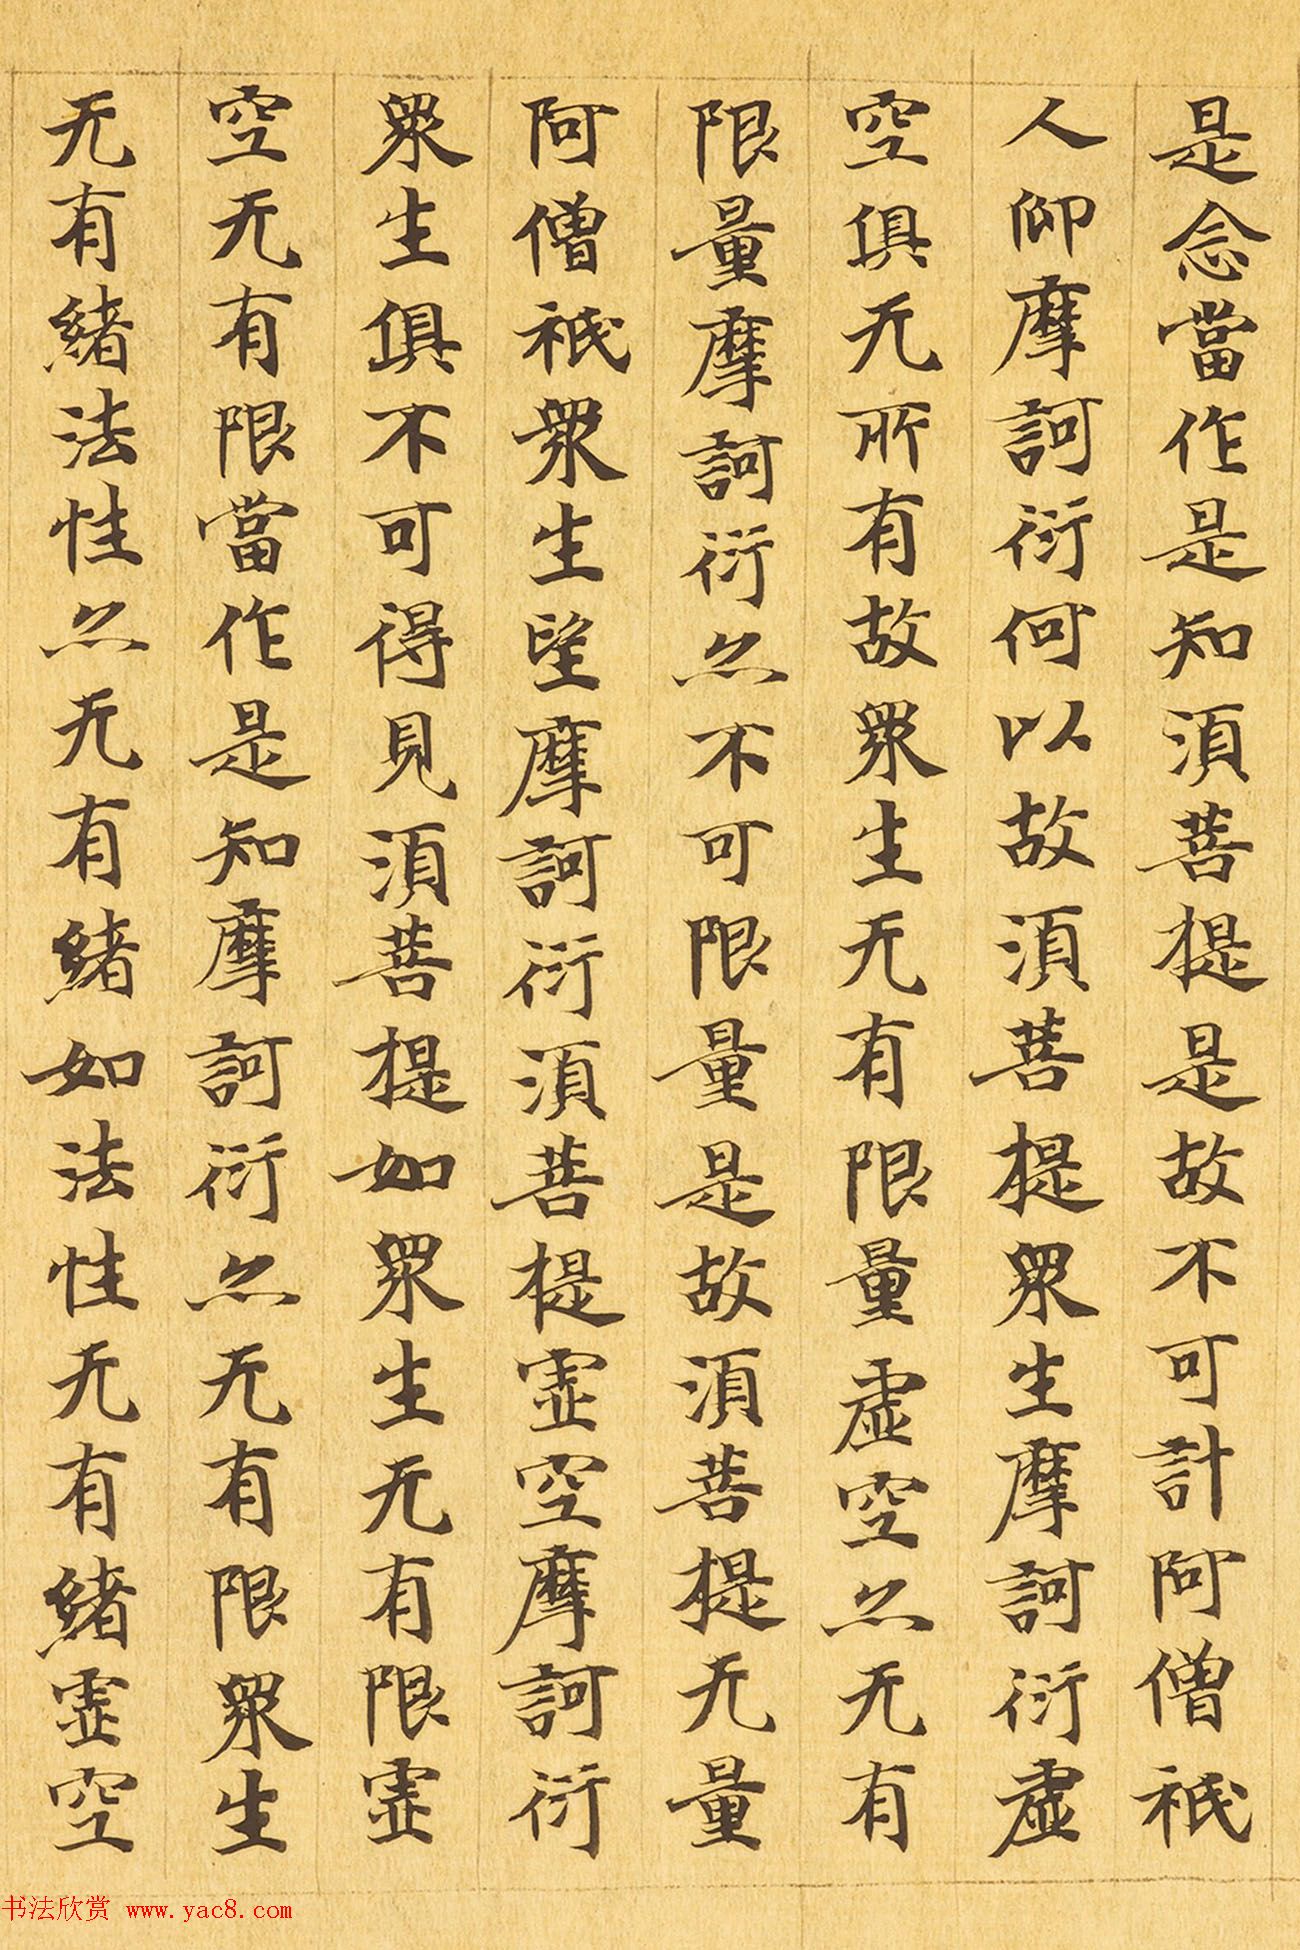 是念當作是知須菩提是故不可計阿僧祇
人仰摩訶衍何以故須菩提眾生摩訶衍虛
空俱无所有故眾生无有限量虛空亦无有
限量摩訶衍亦不可限量是故須菩提无量
阿僧祇眾生望摩訶衍須菩提虛空摩訶衍
眾生俱不可得見須菩提如眾生无有限虛
空无有限當作是知摩訶衍亦无有限眾生
无有緒法性亦无有緒如法性无有緒虛空
书法欣赏 www.yac8.com